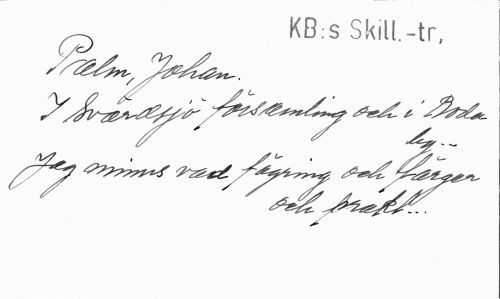 KB:s Skill.-tr,
Psalm, Johan.
I Svärdsjö församling och i Boda
by...
Jag minns vad fägring och färger
och prakt...